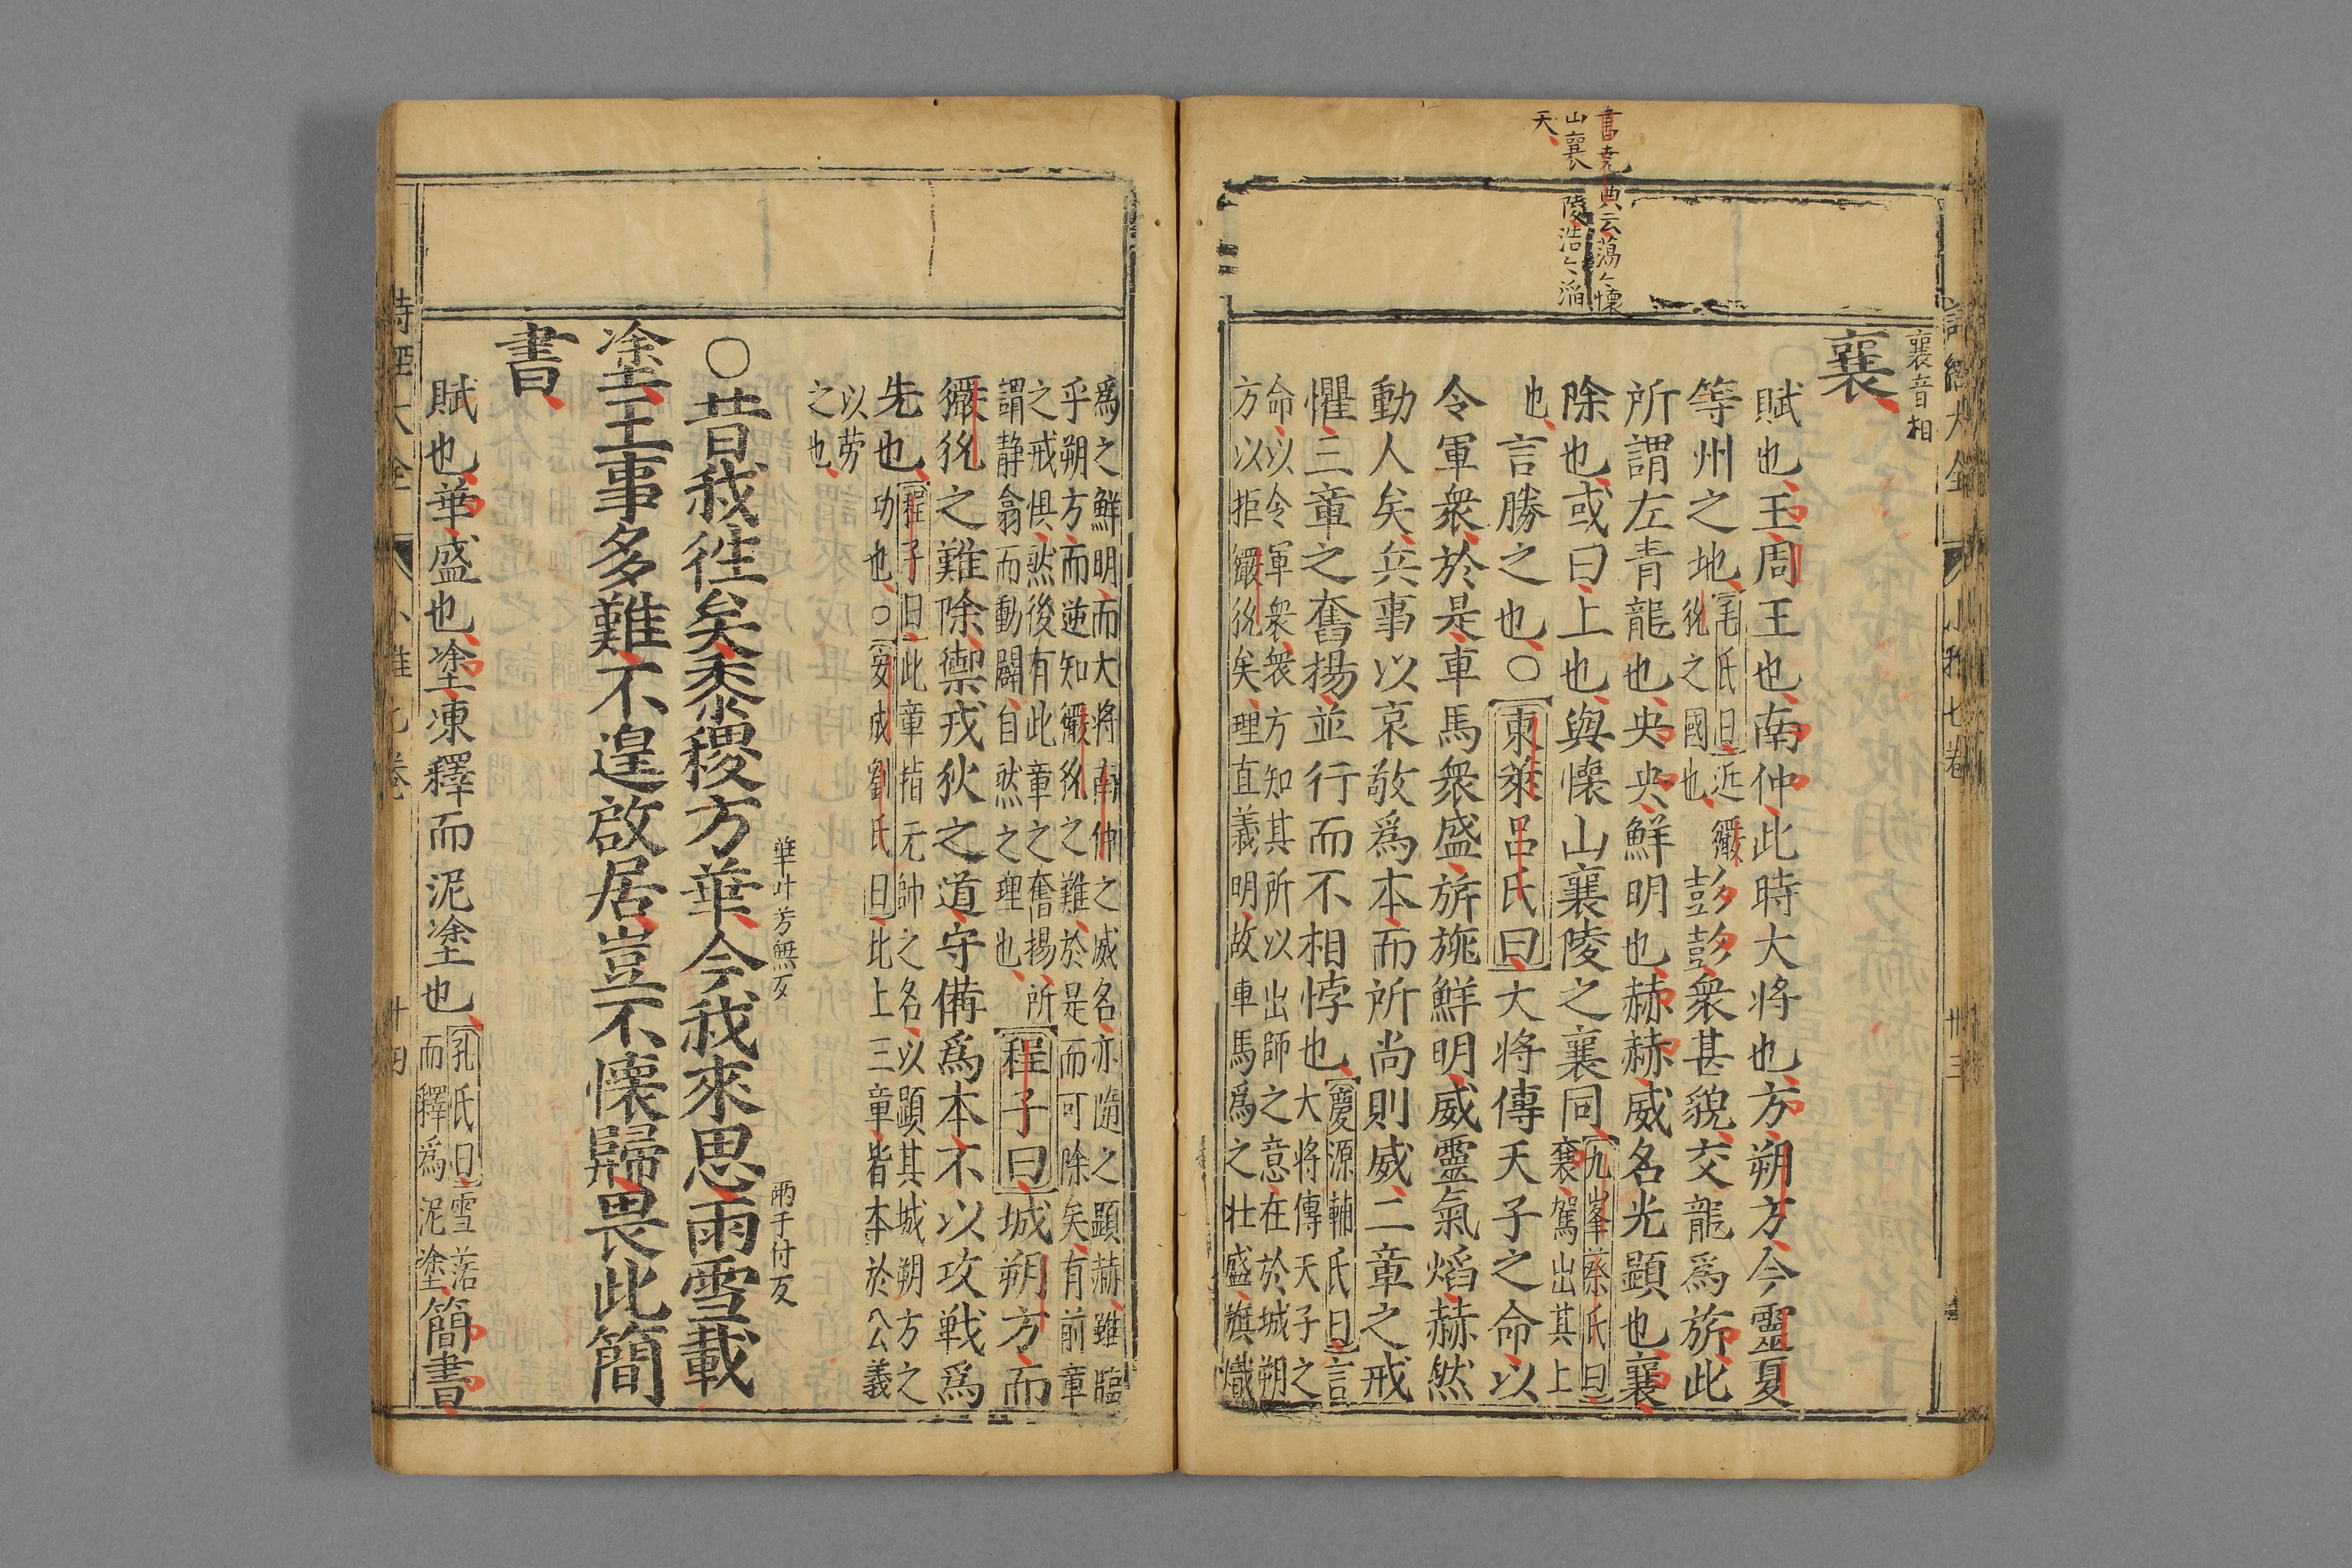 書堯典云蕩〻懷
山襄陵浩〻滔
天
襄音相
襄
賦也王周王也南仲此時大將也方朔方今靈夏
等州之地
毛氏曰近玁
狁之國也
彭彭衆甚貌交龍爲旂此
所謂左青龍也央央鮮明也赫赫威名光顯也襄
除也或曰上也與懷山襄陵之襄同
九峯蔡氏曰
襄駕出其上
也
言勝之也○東萊呂氏曰大將傳天子之命以
令軍衆於是車馬衆盛旂旐鮮明威靈氣焰赫然
動人矣兵事以哀敬爲本而所尚則威二章之戒
懼三章之奮揚並行而不相悖也
慶源輔氏曰言
大將傳天子之
命以令軍衆衆方知其所以出師之意在於城朔
方以拒玁狁矣理直義明故車馬爲之壯盛旗幟
爲之鮮明而大將南仲之威名亦隨之顯赫雖臨
乎朔方而逆知玁狁之難於是而可除矣有前章
之戒惧然後有此章之奮揚所
謂静翕而動闢自然之理也
程子曰城朔方而
玁狁之難除禦戎狄之道守備爲本不以攻戦爲
先也
程子曰此章指元帥之名以顕其城朔方之
功也○安成劉氏曰此上三章皆本於公義
以劳
之也
○昔我徃矣黍稷方華今我來思雨雪載
華叶芳無反
雨于付反
塗王事多難不遑啟居豈不懷歸畏此簡
書
賦也華盛也塗凍釋而泥塗也
孔氏曰雪落
而釋爲泥塗
簡書
詩經大全
小雅七卷
廿三